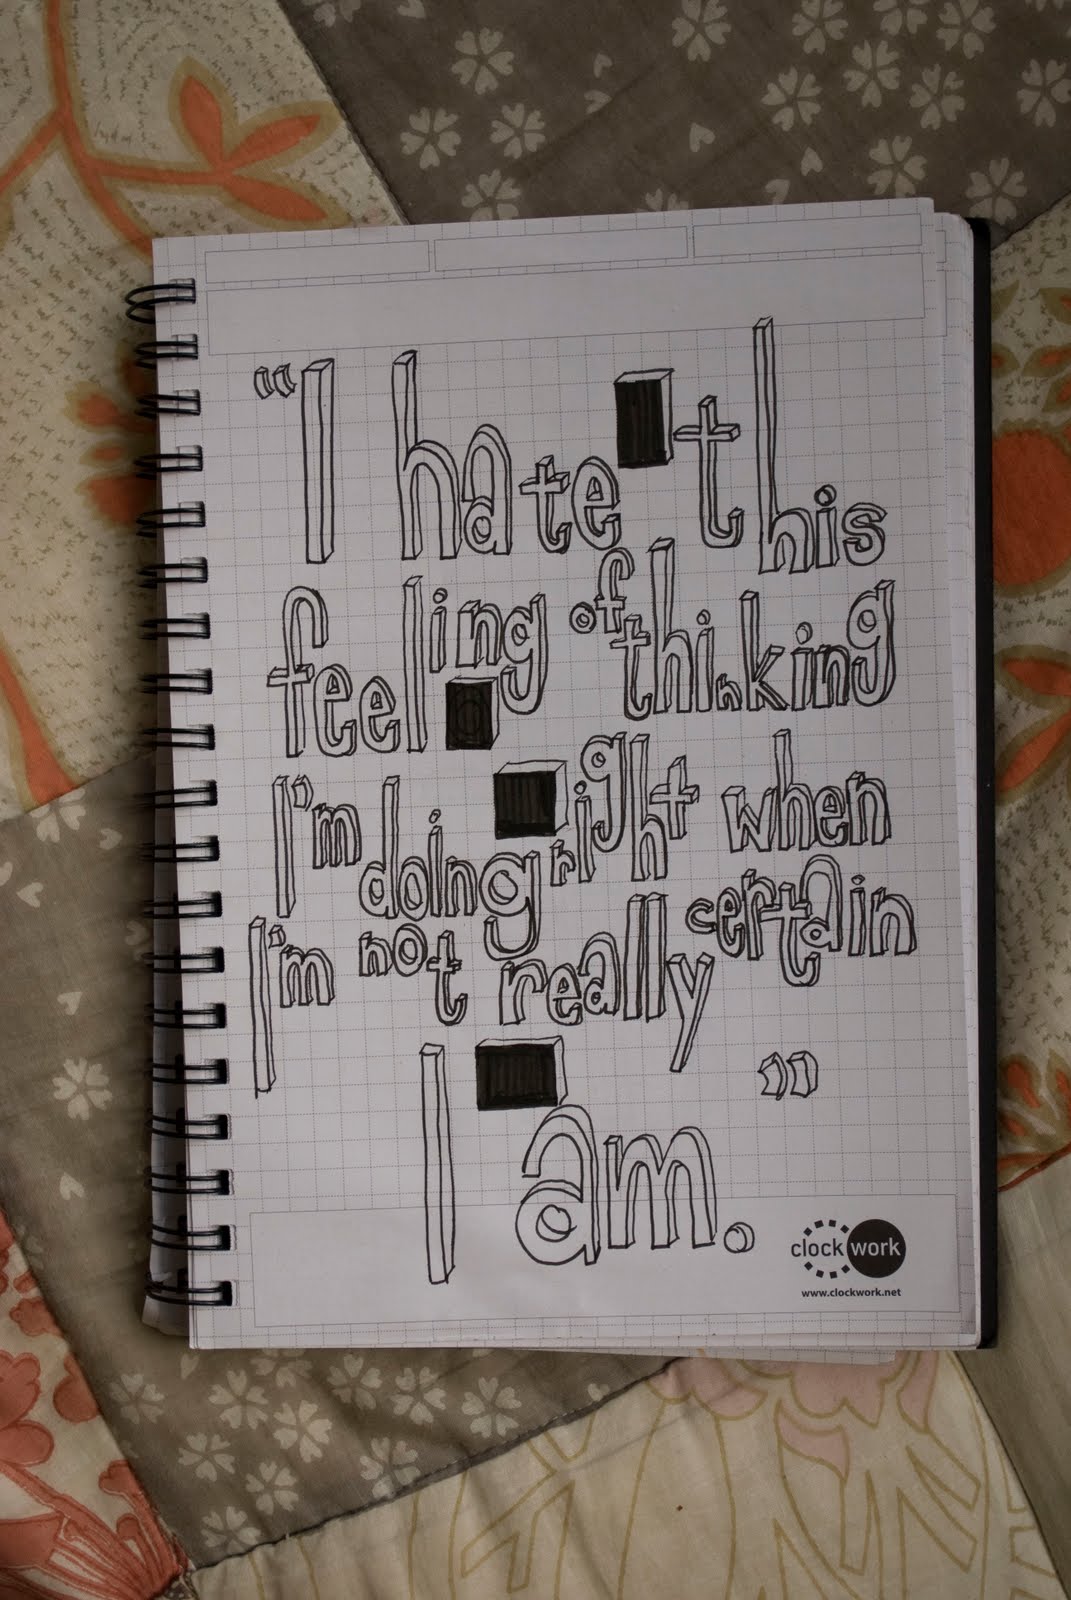 “I hate this
feeling of thinking
I'm doing right when
I'm not really certain
I am.”
clockwork
www.clockwork.net